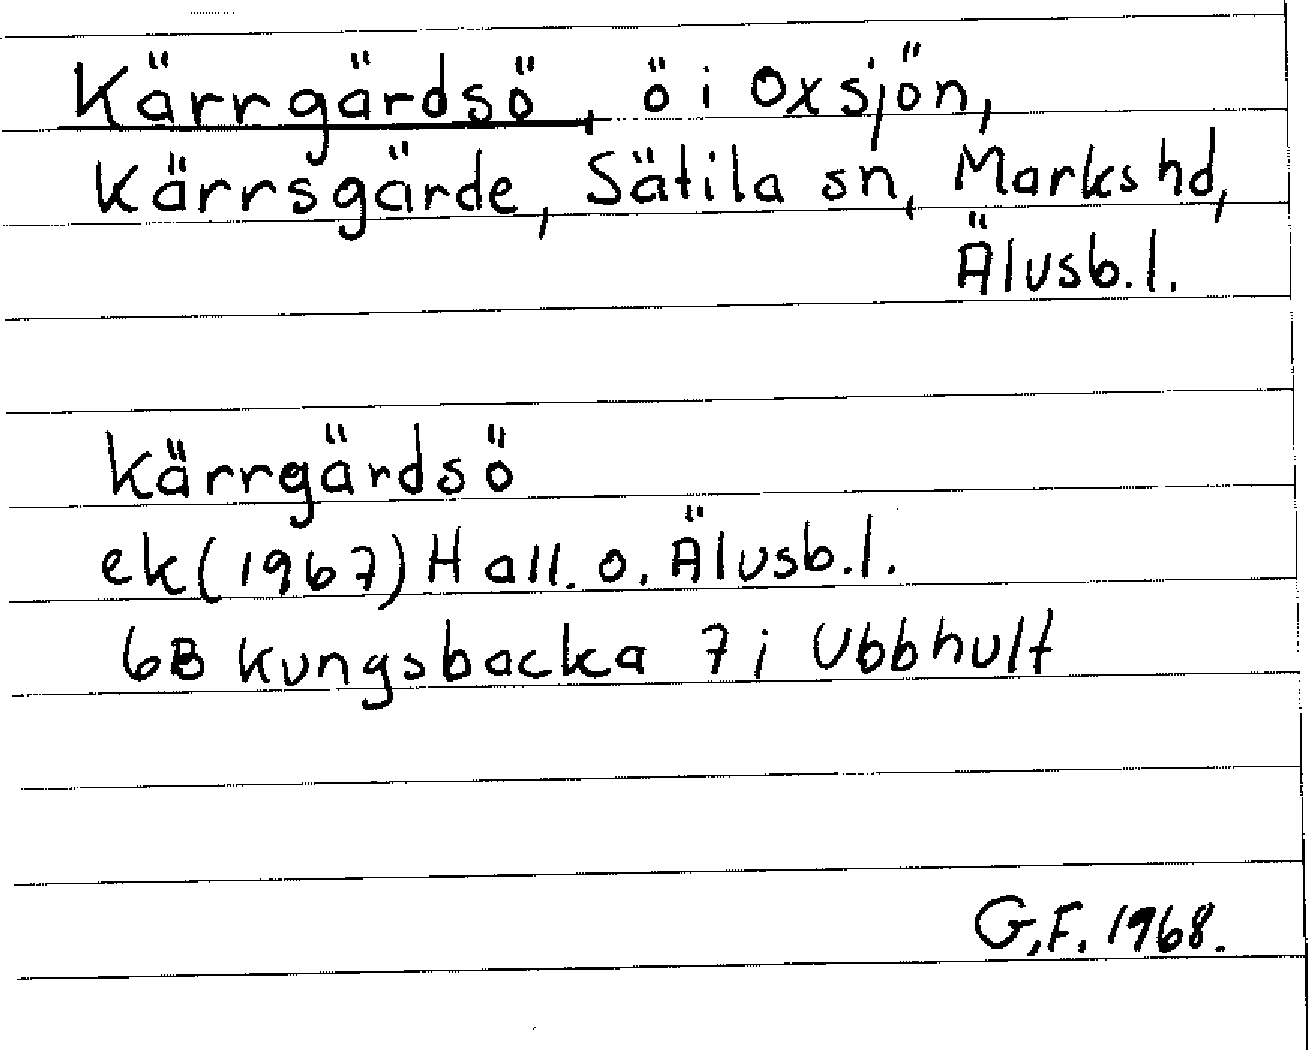 Kärrgärdsö, ö i Oxsjön,
Kärrsgärde, Sätila sn, Marks hd,
Älvsb. l.
Kärrgärdsö
ek (1967) Hall. o. Älvsb. l.
6B Kungsbacka 7i Ubbhult
G.F. 1968.